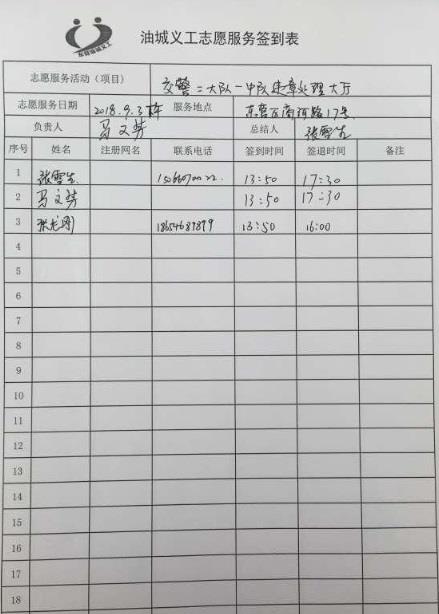 油城义工志愿服务签到表
志愿服务活动（项目） 交警二大队一中队违章处理大厅
志愿服务日期 2018.9.3 服务地点 东营区商河路17号
负责人 马文梦 总结人 张雪生
序号 姓名 注册网名 联系电话 签到时间 签退时间 备注
1 张雪生 13:50 17:30
2 马文梦 13:50 17:30
3 张龙刚 18654689899 13:50 16:00
4
5
6
7
8
9
10
11
12
13
14
15
16
17
18